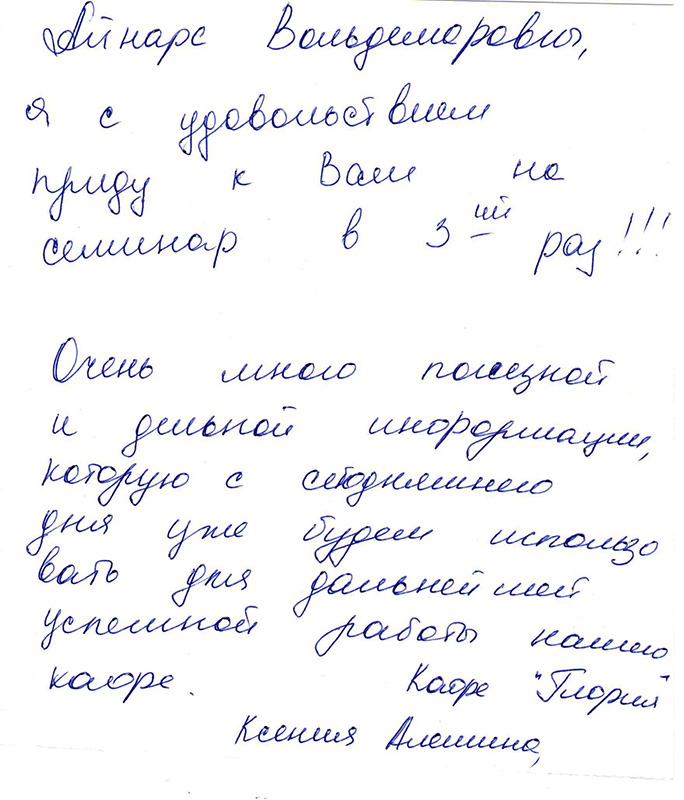 Айнарс Вольдемарович,
я с удовольствием
приду к Вам на
семинар в 3ий раз!!!
Очень много полезной
и дельной информации,
которую с сегодняшнего
дня уже будем использо
вать для дальнейшей
успешной работы нашего
кафе. Кафе "Глория"
Ксения Алешина,